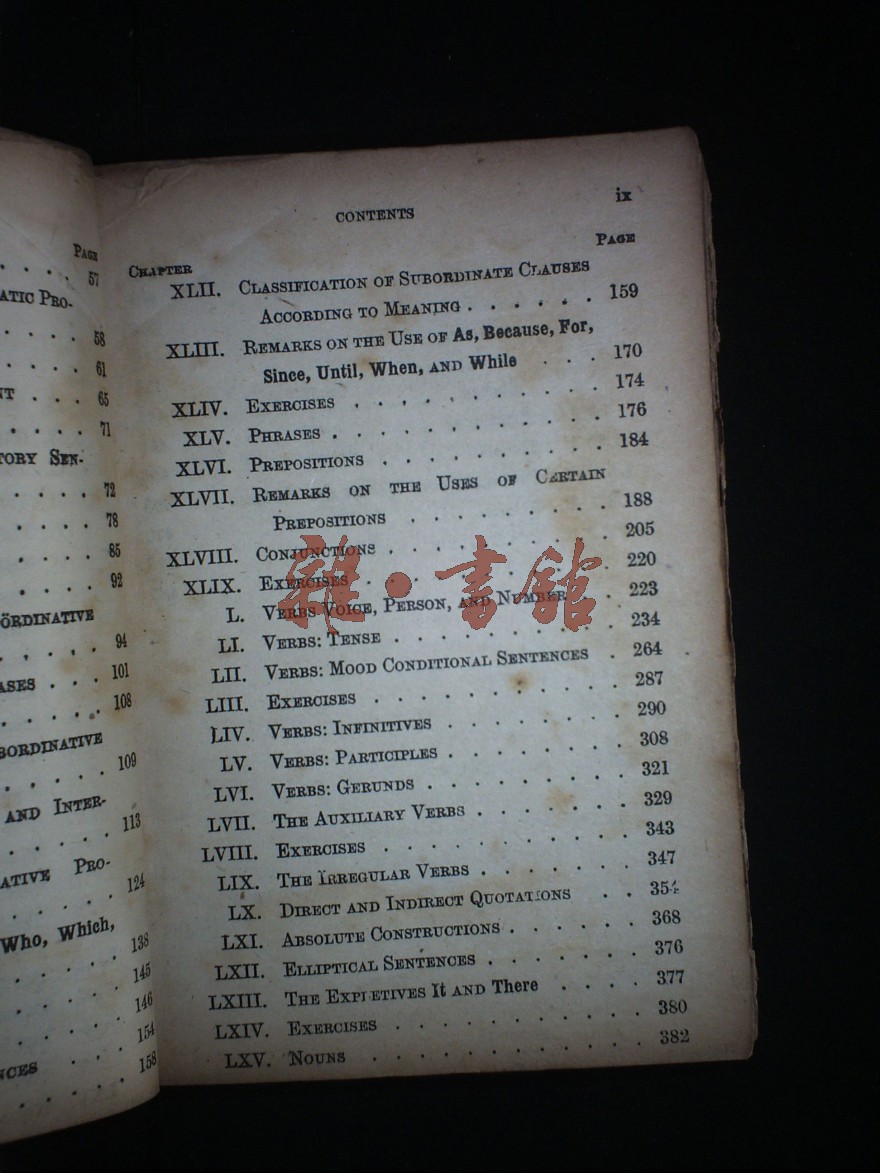 PAGE
57
ATIC PRO-
58
61
NT . . . 65
71
TORY SEN-
72
78
85
92
ÖRDINATIVE
94
ASES . . . 101
108
BORDINATIVE
109
AND INTER-
113
ATIVE PRO-
124
Who, Which,
138
145
146
154
NCES . . . 158
CONTENTS ix
CHAPTER PAGE
XLII. CLASSIFICATION OF SUBORDINATE CLAUSES
ACCORDING TO MEANING . . . . . . 159
XLIII. REMARKS ON THE USE OF As, Because, For,
Since, Until, When, AND While . . . 170
XLIV. EXERCISES . . . . . . . . . 174
XLV. PHRASES . . . . . . . . . . 176
XLVI. PREPOSITIONS . . . . . . . . 184
XLVII. REMARKS ON THE USES OF CERTAIN
PREPOSITIONS . . . . . . . . 188
XLVIII. CONJUNCTIONS . . . . . . . . 205
XLIX. EXERCISES . . . . . . . . . 220
L. VERBS VOICE, PERSON, AND NUMBER . . 223
LI. VERBS: TENSE . . . . . . . . 234
LII. VERBS: MOOD CONDITIONAL SENTENCES . 264
LIII. EXERCISES . . . . . . . . . 287
LIV. VERBS: INFINITIVES . . . . . . . 290
LV. VERBS: PARTICIPLES . . . . . . . 308
LVI. VERBS: GERUNDS . . . . . . . . 321
LVII. THE AUXILIARY VERBS . . . . . . 329
LVIII. EXERCISES . . . . . . . . . 343
LIX. THE IRREGULAR VERBS . . . . . . 347
LX. DIRECT AND INDIRECT QUOTATIONS . . 354
LXI. ABSOLUTE CONSTRUCTIONS . . . . . . 368
LXII. ELLIPTICAL SENTENCES . . . . . . 376
LXIII. THE EXPLETIVES It AND There . . . . 377
LXIV. EXERCISES . . . . . . . . . 380
LXV. NOUNS . . . . . . . . . . 382
雜·書館